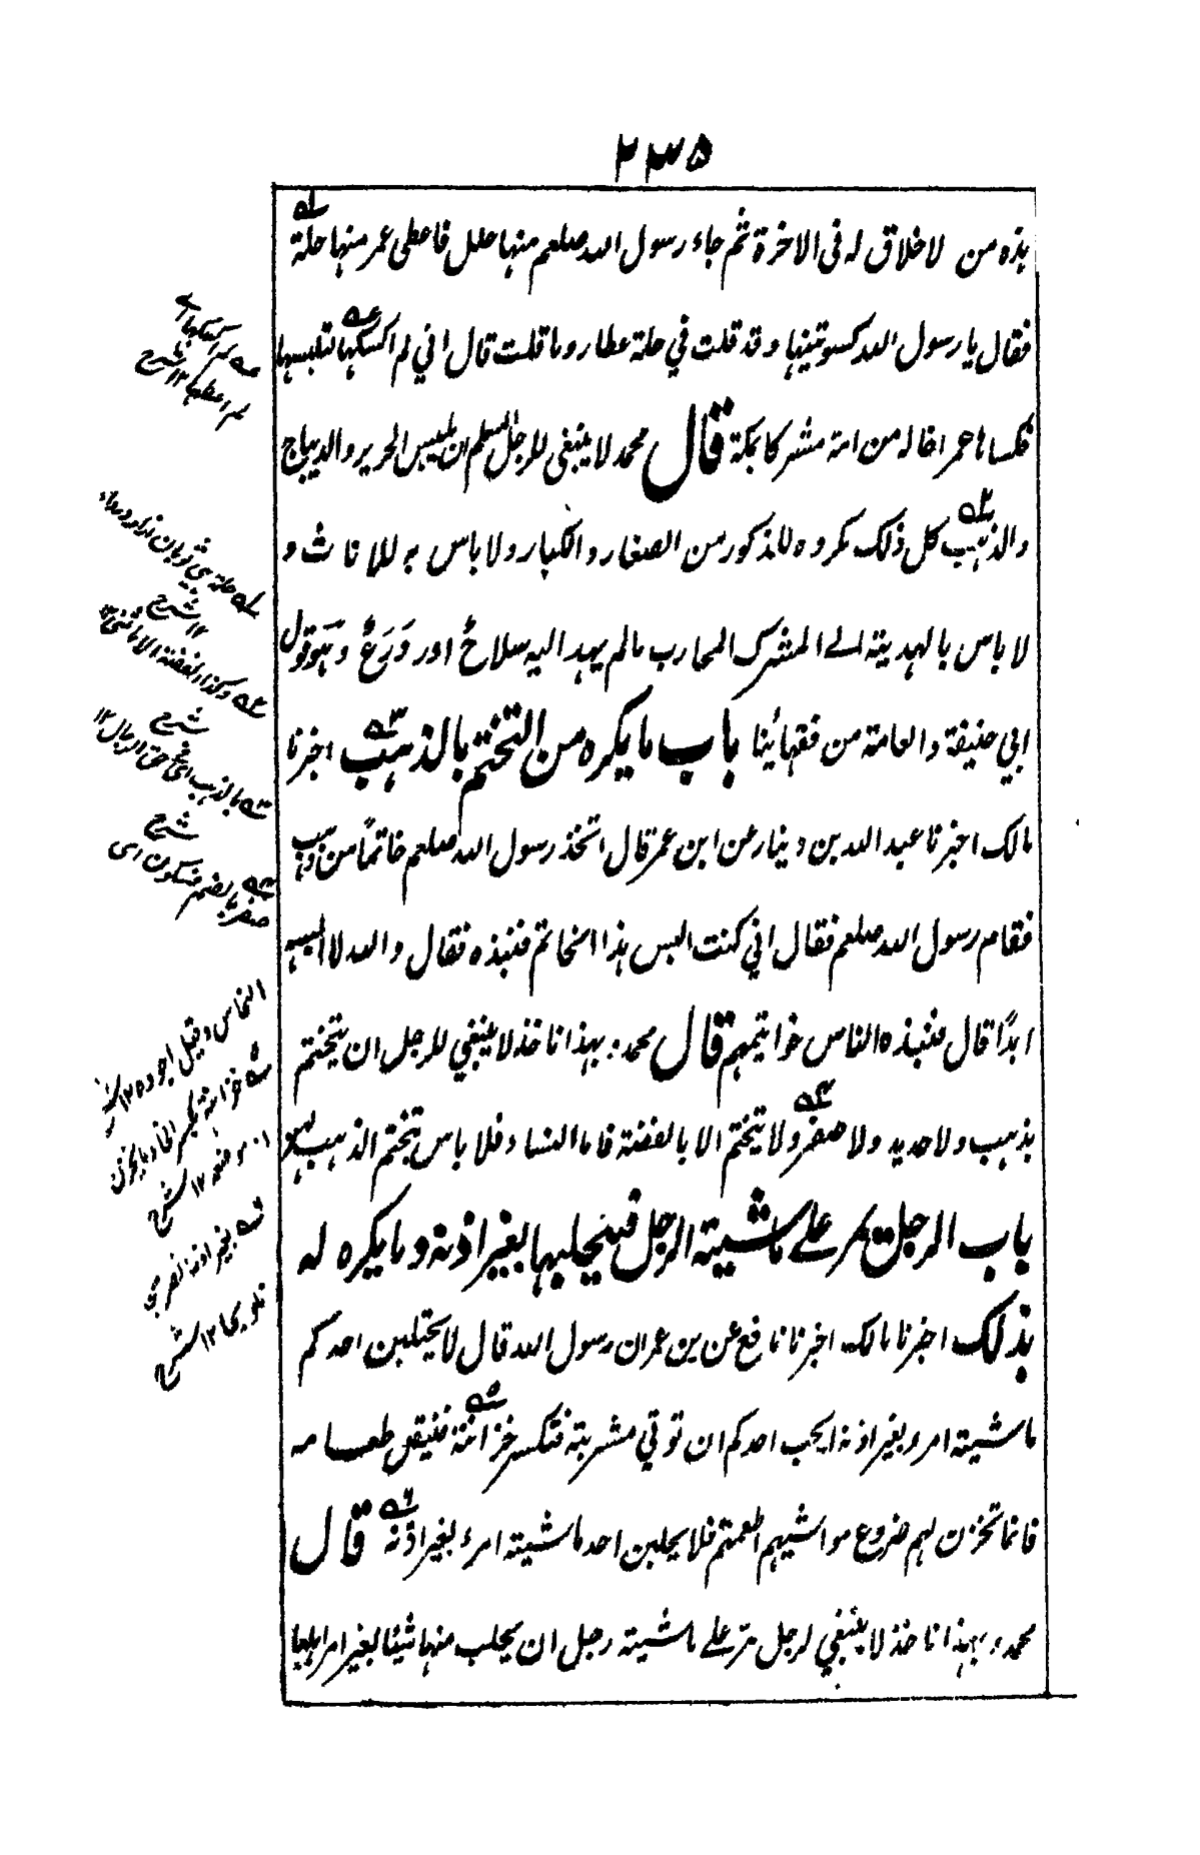 ۲۳۵
هذه من لا خلاق له فی الاخرة ثم جاء رسول الله صلعم منها حلل فاعطی عمر منها حلة
فقال یا رسول الله کسوتنیها وقد قلت في حلة عطارد ما قلت قال اني لم اکسکها لتلبسها
فکساها عمر اخا له من امه مشرکا بمکة قال محمد لا ینبغی للرجل المسلم ان یلبس الحریر والدیباج
والذهب کل ذلک مکروه للذکور من الصغار والکبار ولا باس به للاناث و
لا باس بالهدیة الی المشرک المحارب مالم یهد الیه سلاحٌ اور وَرَعٌ وهَوَ قول
ابي حنیفة والعامة من فقهائنا باب ما یکره من التختم بالذهب اخبرنا
مالک اخبرنا عبد الله بن دینار عن ابن عمر قال اتخذ رسول الله صلعم خاتمًا من ذهب
فقام رسول الله صلعم فقال اني کنت البس هذا الخاتم فنبذه فقال والله لا البسه
ابدًا قال فنبذه الناس خواتیمهم قال محمد: بهذا ناخذ لا ینبغي للرجل ان یتختم
بذهب ولا حدید ولا صفر ولا یتختم الا بالفضة فاما النساء فلا باس تبختم الذهب لهن
باب الرجل یمر علے ماشیة الرجل فیحلبها بغیر اذنه وما یکره له
بذلک اخبرنا مالک اخبرنا نافع عن بن عمر ان رسول الله قال لا یحتلبن احدکم
ماشیة امرو بغیر اذنه ایحب احدکم ان توتي مشربته فتکسر خزانته فینقل طعامه
فانما تخزن لهم ضروع مواشیهم اطعمتهم فلا یحلبن احد ماشیة امرء بغیر اذنه قال
محمد و بهذا ناخذ لا ینبغي لرجل مرّ علے ماشیة رجل ان یحلب منها شیئا بغیر امر اهلها
لم اکسکها اے
لم اعطها ۱۲ شرح
۱۲ شرح
وکذا الفضة الا ما استثنی ۱۲
شرح
شرح
بالضم فسکون ای
النحاس وقیل اجوده ۱۲
خزانة بکسر الخاء ما یخزن
۱۲ شرح
۱۲ شرح